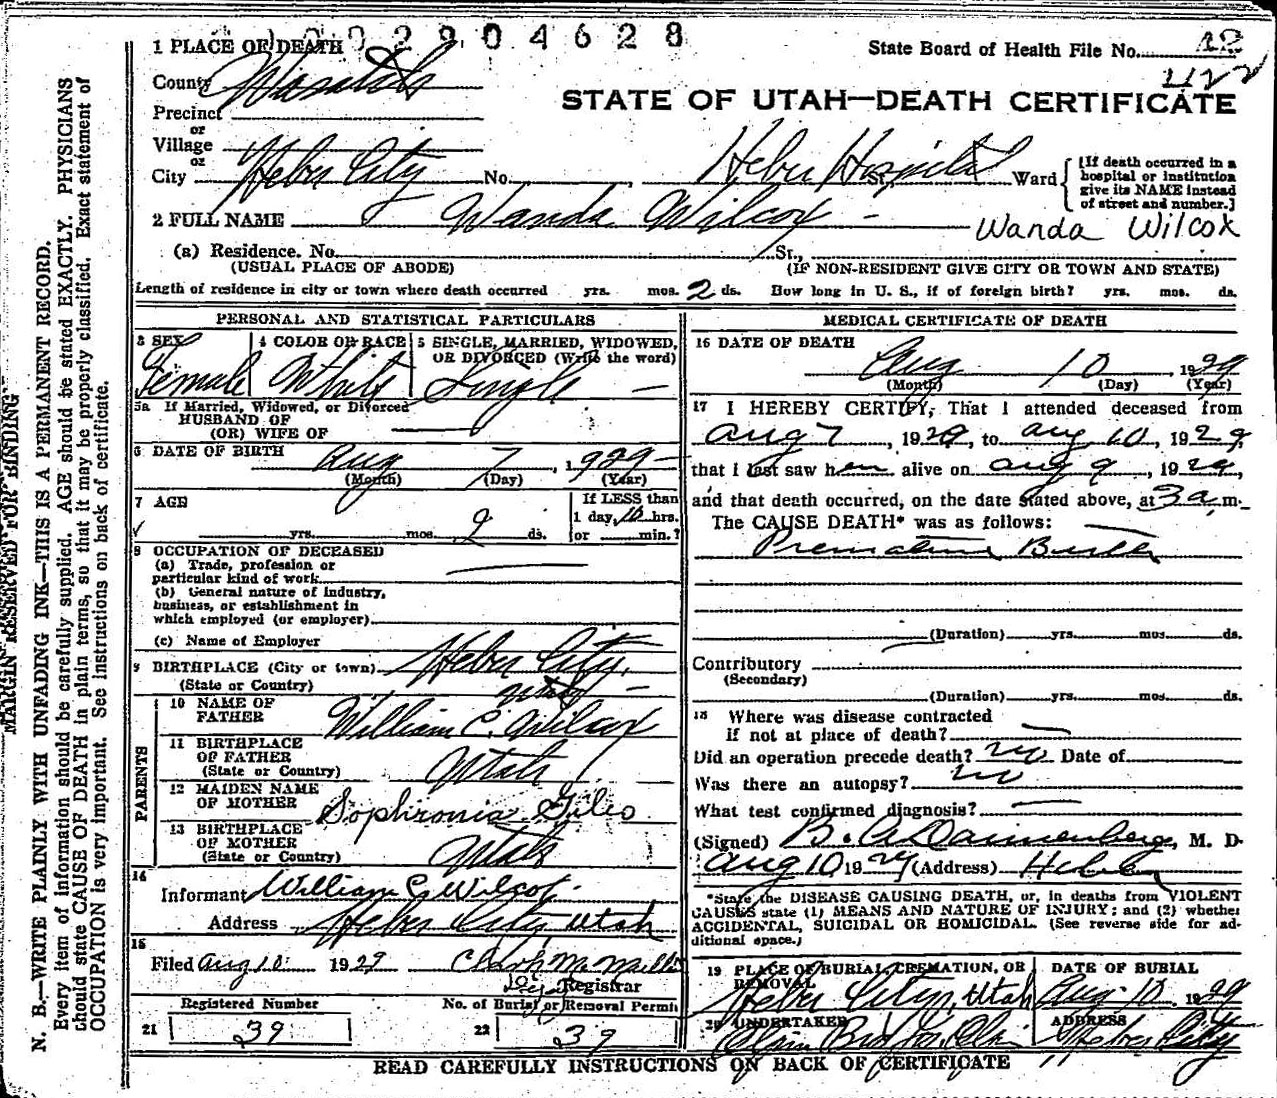 1002904628
1 PLACE OF DEATH
State Board of Health File No. 12
422
County Wasatch
STATE OF UTAH—DEATH CERTIFICATE
Precinct
or
Village
or
City Heber City No. Heber Hospital St. Ward
[If death occurred in a
hospital or institution
give its NAME instead
of street and number.]
2 FULL NAME Wanda Wilcox
Wanda Wilcox
(a) Residence. No. St.,
(USUAL PLACE OF ABODE) (IF NON-RESIDENT GIVE CITY OR TOWN AND STATE)
Length of residence in city or town where death occurred yrs. mos. 2 ds. How long in U. S., if of foreign birth? yrs. mos. ds.
PERSONAL AND STATISTICAL PARTICULARS
3 SEX 4 COLOR OR RACE 5 SINGLE, MARRIED, WIDOWED,
OR DIVORCED (Write the word)
Female White Single
5a If Married, Widowed, or Divorced
HUSBAND OF
(OR) WIFE OF
6 DATE OF BIRTH Aug 7, 1929
(Month) (Day) (Year)
7 AGE If LESS than
1 day, 10 hrs.
yrs. mos. 2 ds. or min.?
8 OCCUPATION OF DECEASED
(a) Trade, profession or
particular kind of work
(b) General nature of industry,
business, or establishment in
which employed (or employer)
(c) Name of Employer
9 BIRTHPLACE (City or town) Heber City,
(State or Country) Utah
PARENTS
10 NAME OF
FATHER William C. Wilcox
11 BIRTHPLACE
OF FATHER
(State or Country) Utah
12 MAIDEN NAME
OF MOTHER Sophronia Giles
13 BIRTHPLACE
OF MOTHER
(State or Country) Utah
14
Informant William C. Wilcox
Address Heber City Utah
15
Filed Aug 10 1929
Registrar
Registered Number No. of Burial or Removal Permit
21 39 22 39
MEDICAL CERTIFICATE OF DEATH
16 DATE OF DEATH
Aug 10, 1929
(Month) (Day) (Year)
17 I HEREBY CERTIFY, That I attended deceased from
Aug 7, 1929, to Aug 10, 1929,
that I last saw her alive on Aug 9, 1929,
and that death occurred, on the date stated above, at 3 a m.
The CAUSE DEATH* was as follows:
Premature Birth
(Duration) yrs. mos. ds.
Contributory
(Secondary)
(Duration) yrs. mos. ds.
18 Where was disease contracted
if not at place of death?
Did an operation precede death? no Date of
Was there an autopsy? no
What test confirmed diagnosis?
(Signed) B. A. Dannenberg, M. D.
Aug 10 1929 (Address) Heber
*State the DISEASE CAUSING DEATH, or, in deaths from VIOLENT
CAUSES state (1) MEANS AND NATURE OF INJURY; and (2) whether
ACCIDENTAL, SUICIDAL OR HOMICIDAL. (See reverse side for ad-
ditional space.)
19 PLACE OF BURIAL, CREMATION, OR
REMOVAL DATE OF BURIAL
Heber City, Utah Aug. 10 1929
20 UNDERTAKER ADDRESS
Heber City
READ CAREFULLY INSTRUCTIONS ON BACK OF CERTIFICATE
MARGIN RESERVED FOR BINDING
N. B.—WRITE PLAINLY WITH UNFADING INK—THIS IS A PERMANENT RECORD.
Every item of information should be carefully supplied. AGE should be stated EXACTLY. PHYSICIANS
should state CAUSE OF DEATH in plain terms, so that it may be properly classified. Exact statement of
OCCUPATION is very important. See instructions on back of certificate.